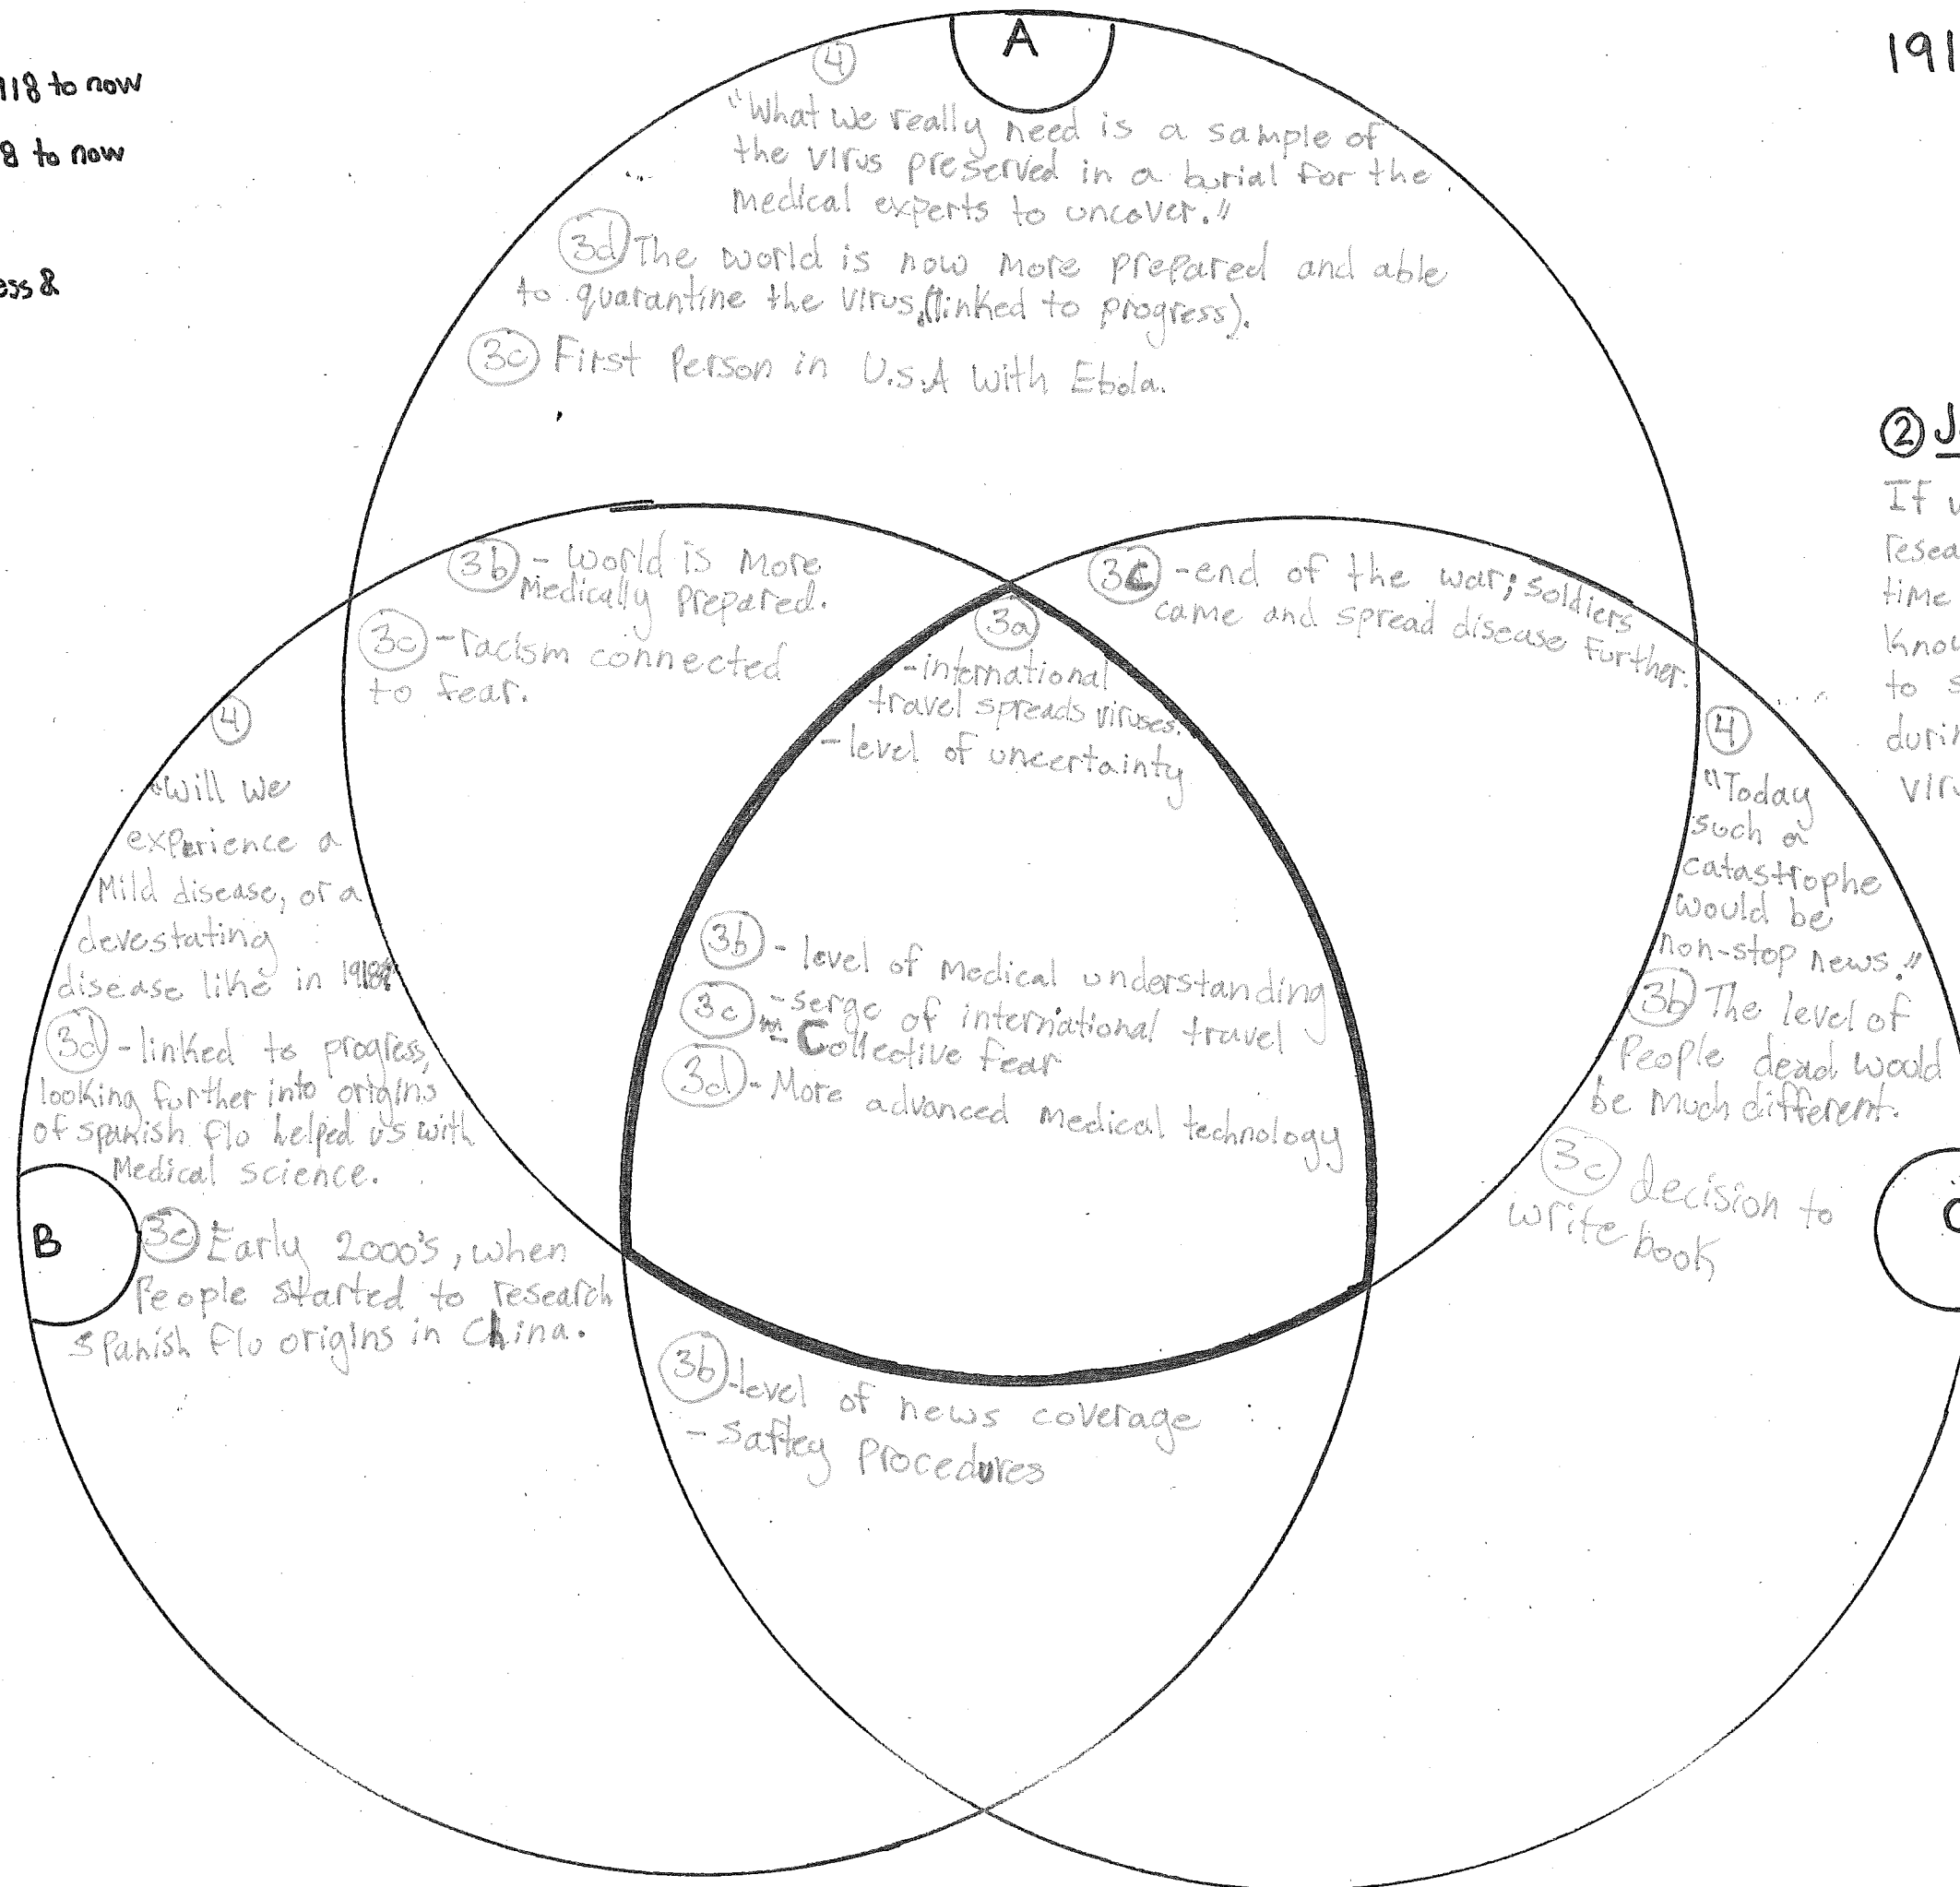 118 to now
8 to now
ess &
A
4
"What we really need is a sample of
the virus preserved in a burial for the
medical experts to uncover."
3d The world is now more prepared and able
to quarantine the virus, (linked to progress).
3c First Person in U.S.A with Ebola.
191
2
If
resea
time
Know
to s
durin
viru
3b - world is more
Medically prepared.
3c - racism connected
to fear.
3c - end of the war; soldiers
came and spread disease further.
3a
- international
travel spreads viruses.
- level of uncertainty
4
"Will we
experience a
Mild disease, or a
devestating
disease like in 1918?"
3d - linked to progress,
looking further into origins
of spanish flo helped us with
Medical science.
B
3c Early 2000's, when
People started to research
spanish flu origins in China.
3b - level of medical understanding
3c - serge of international travel
- Collective fear
3d - More advanced medical technology
4
"Today
such a
catastrophe
would be
non-stop news."
3b The level of
People dead would
be much different.
3c decision to
write book
C
3b - level of news coverage
- saftey Procedures